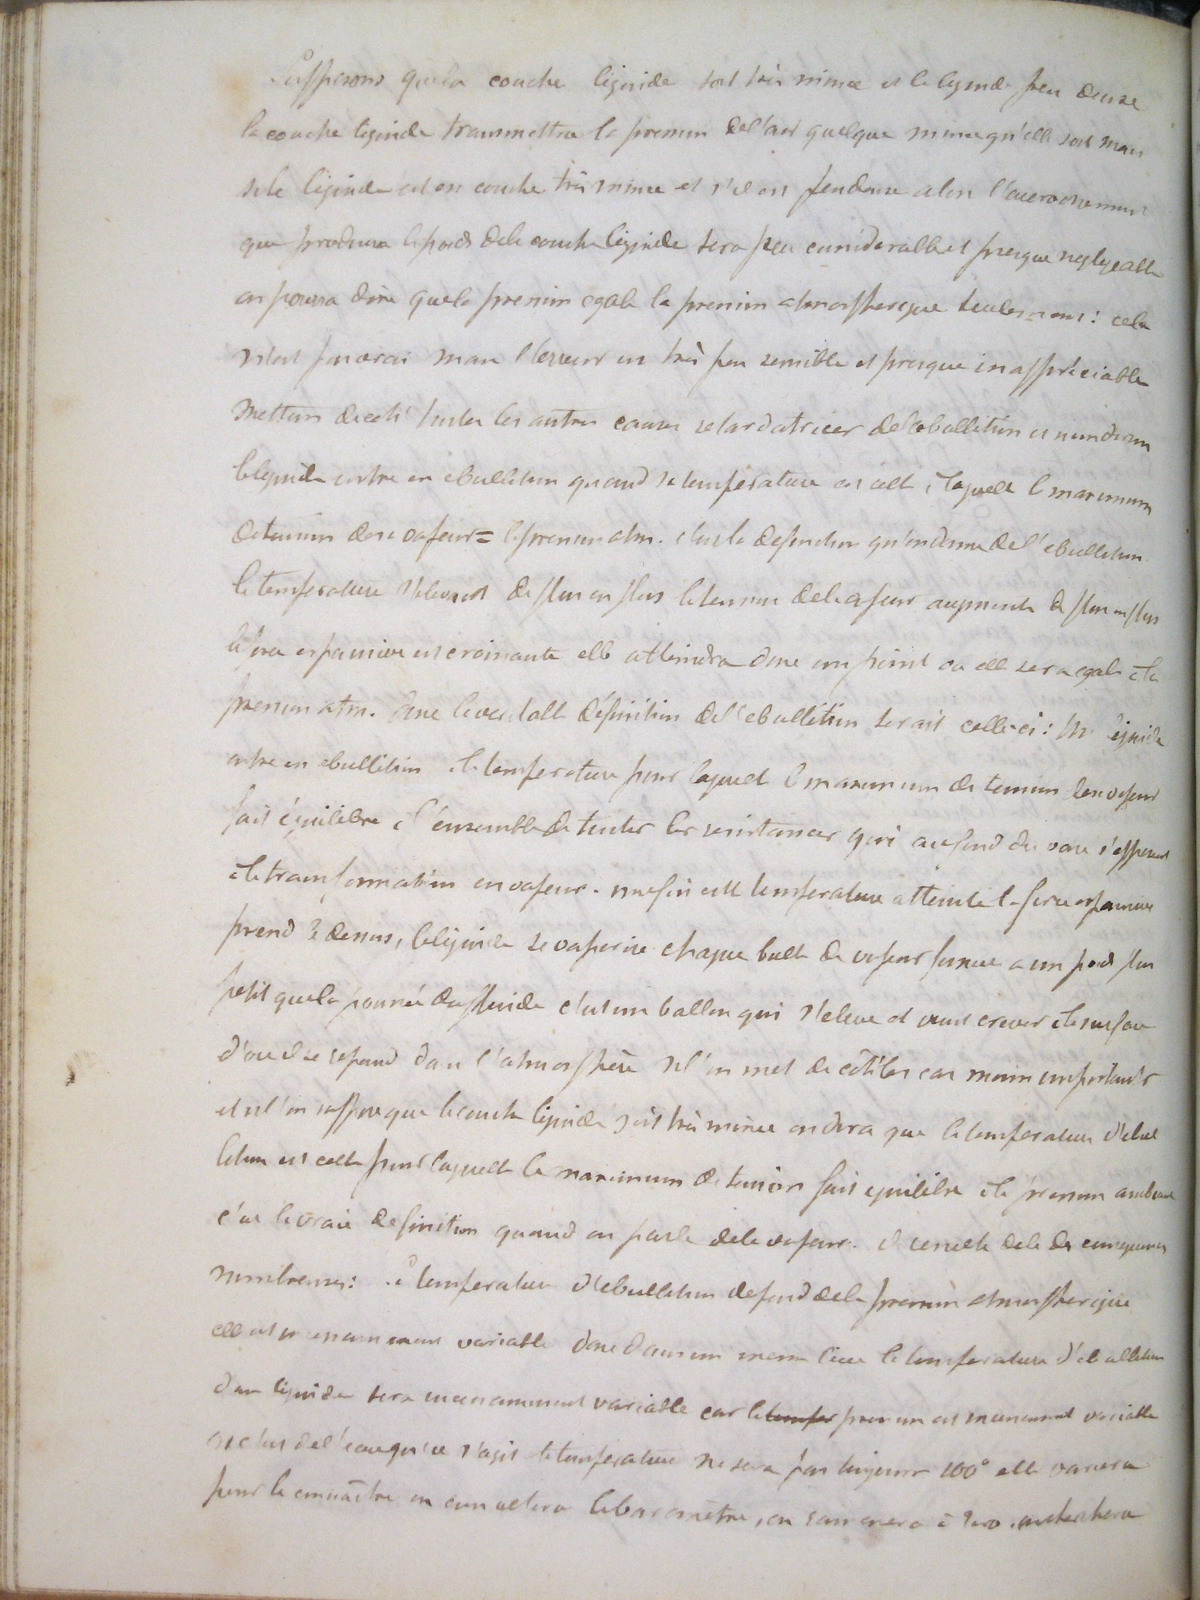 Supposons que la couche liquide soit très mince et le liquide peu dense
la couche liquide transmettra la pression de l'air quelque mince qu'elle soit mais
si le liquide est en couche très mince et s'il est peu dense alors l'accroissement
que produira le poids de la couche liquide sera peu considerable et presque negligeable
on pourra dire que la pression egale la pression atmospherique seulement : cela
n'est pas vrai mais l'erreur est très peu sensible et presque inappréciable
Mettons de coté toutes les autres causes retardatrices de l'ebullition et nous dirons
le liquide entre en ebullition quand sa temperature est celle à laquelle le maximum
de tension de sa vapeur = la pression atm. c'est la definition qu'on donne de l'ebullition
la temperature s'elevant de plus en plus la tension de la vapeur augmente de plus en plus
la force expansive est croissante elle atteindra donc un point ou elle sera egale à la
pression atm. Donc la veritable définition de l'ebullition serait celle-ci : Un liquide
entre en ebullition à la temperature pour laquelle le maximum de tension de sa vapeur
fait équilibre à l'ensemble de toutes les resistances qui au fond du vase s'opposent
à la transformation en vapeur. une fois cette temperature atteinte la force expansive
prend le dessus, le liquide se vaporise chaque bulle de vapeur formée a un poids plus
petit que la poussée du fluide c'est un ballon qui s'eleve et vient crever à la surface
d'ou il se repand dans l'atmosphère si l'on met de côté les cas moins importants
et si l'on suppose que la couche liquide soit très mince on dira que la temperature d'ebul
lition est celle pour laquelle le maximum de tension fait equilibre à la pression ambiante
c'est la vraie definition quand on parle de la vapeur. il resulte de là des consequences
nombreuses : la temperature d'ebullition depend de la pression atmospherique
elle est incessamment variable donc dans un meme lieu la temperature d'ebullition
d'un liquide sera incessamment variable car la temper pression est incessamment variable
si c'est de l'eau qu'il s'agit la temperature ne sera pas toujours 100° elle variera
pour la connaître on consultera le baromètre, on ramenera à zero. on cherchera